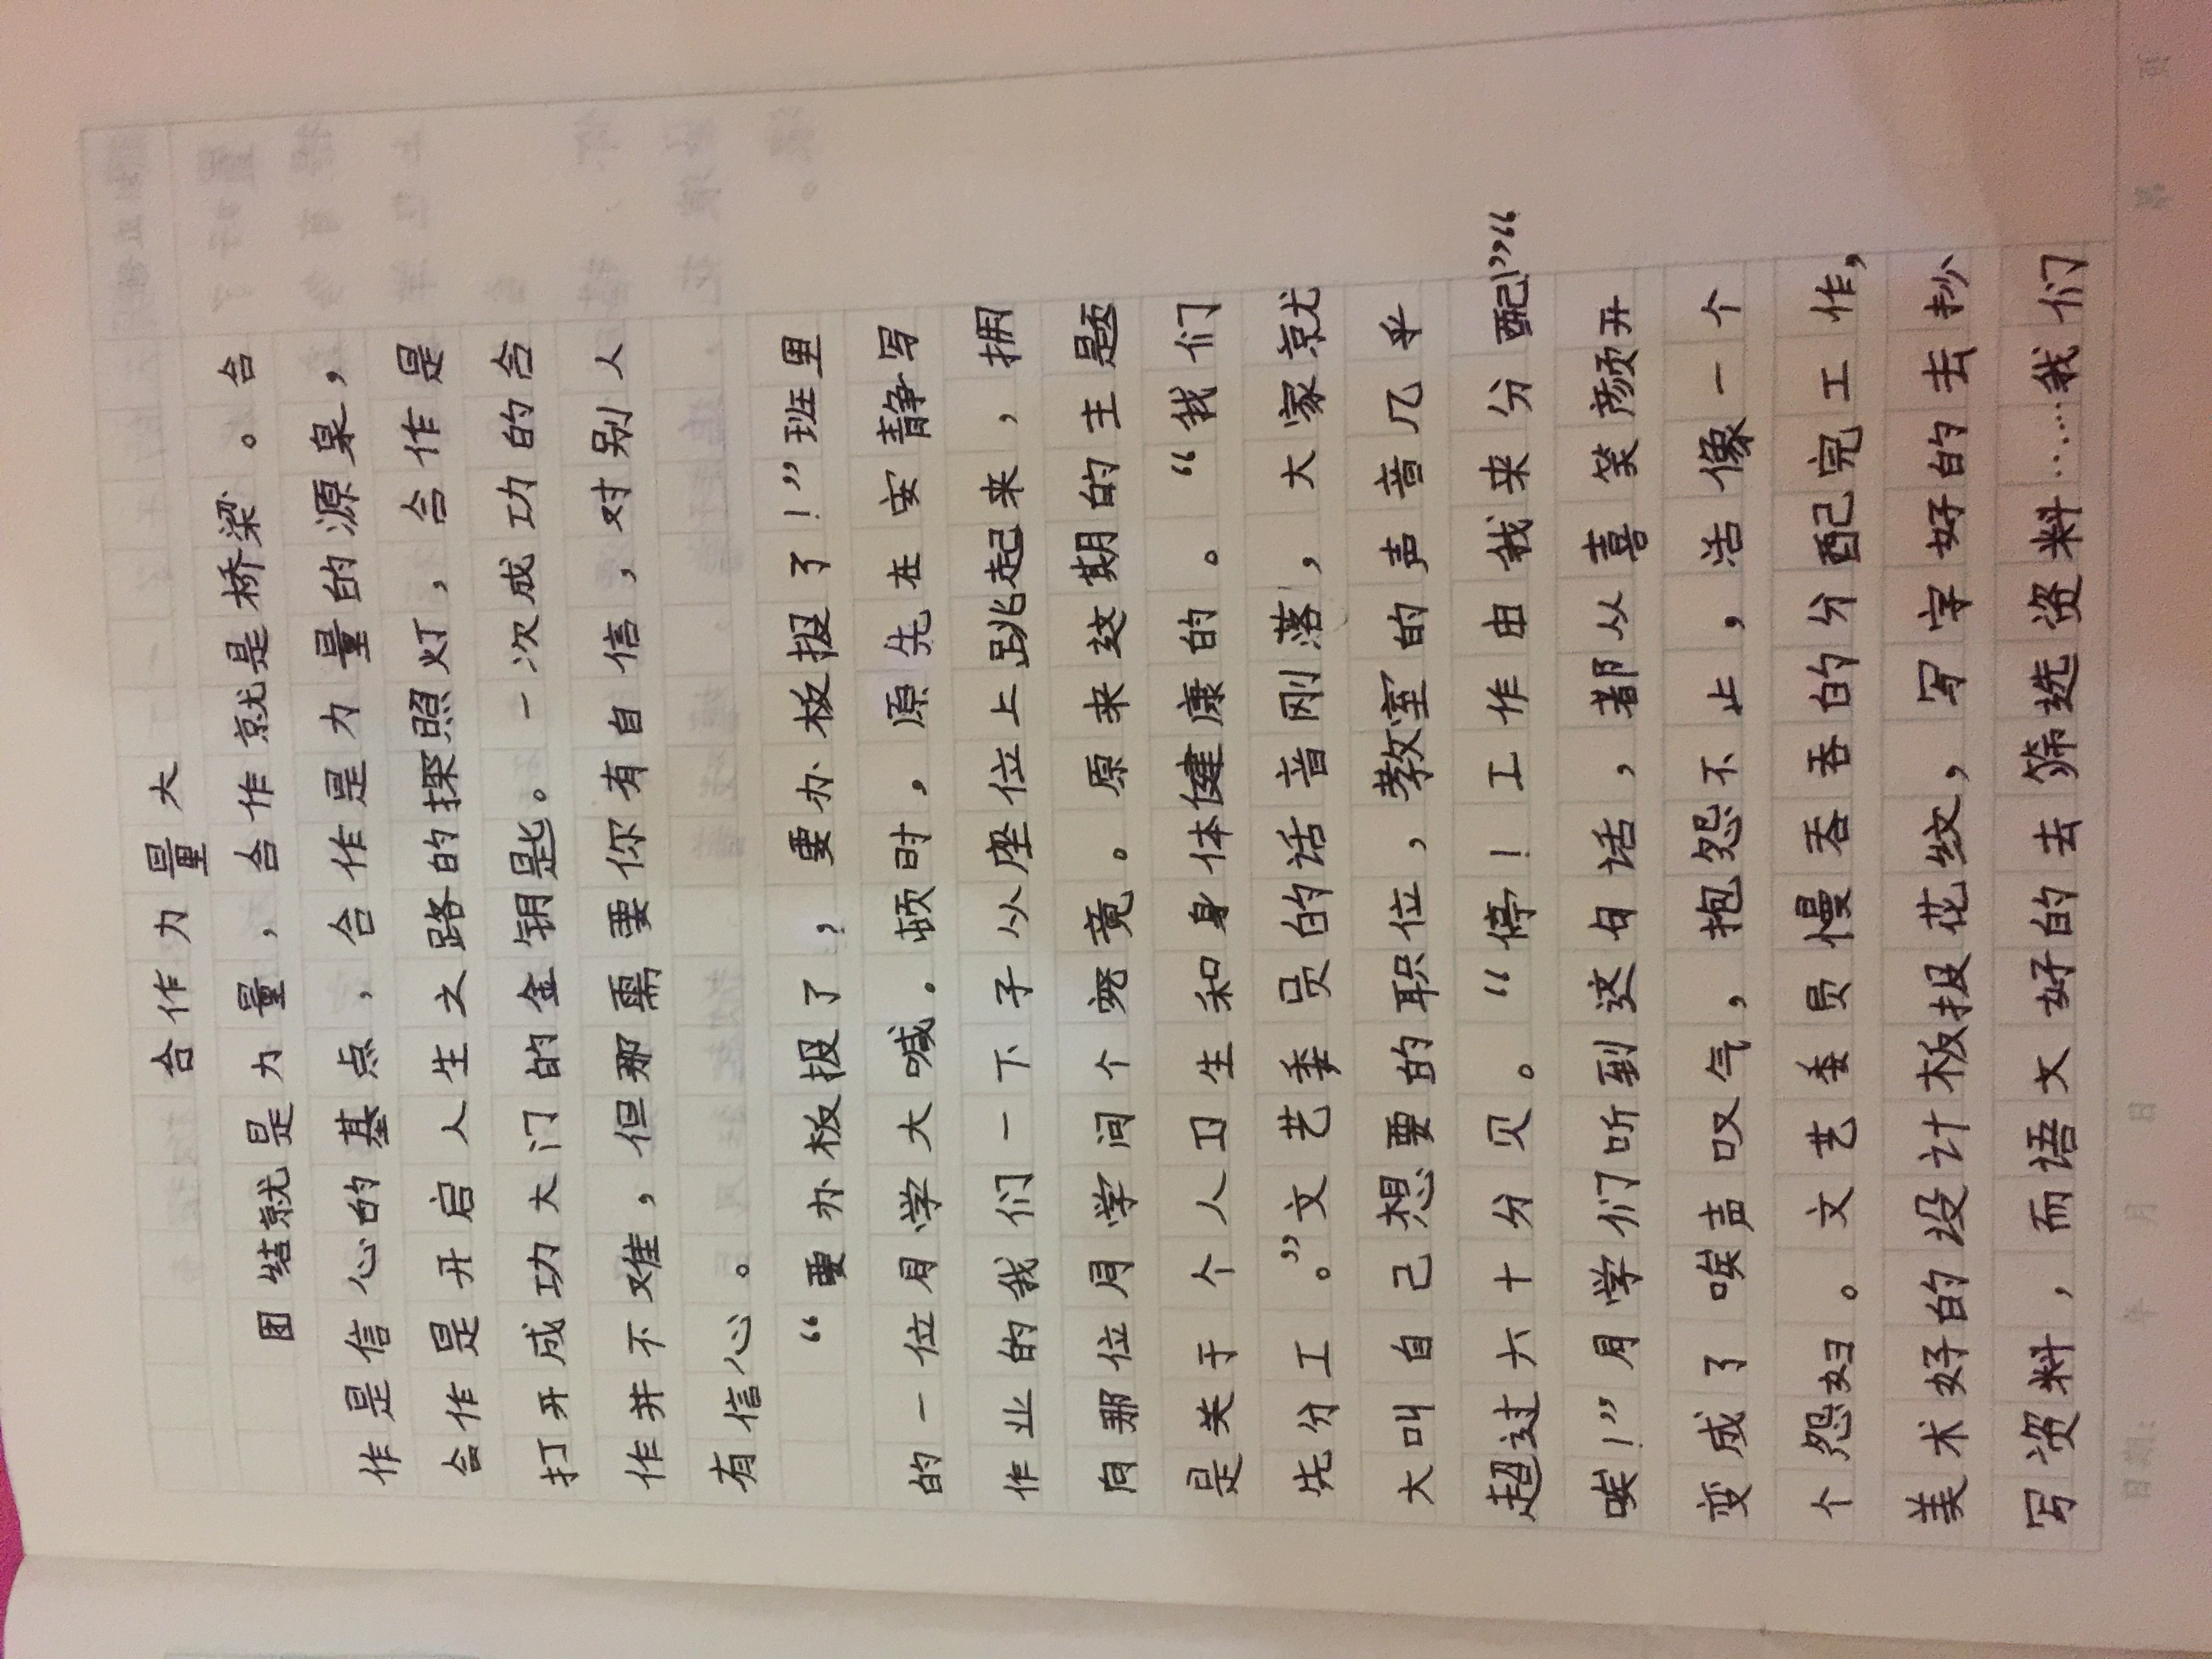 合作力量大
团结就是力量，合作就是桥梁。合
作是信心的基点，合作是力量的源泉，
合作是开启人生之路的探照灯，合作是
打开成功大门的金钥匙。一次成功的合
作并不难，但那需要你有自信，对别人
有信心。
“要办板报了，要办板报了！”班里
的一位同学大喊。顿时，原先在安静写
作业的我们一下子从座位上跳起来，拥
向那位同学问个究竟。原来这期的主题
是关于个人卫生和身体健康的。“我们
先分工。”文艺委员的话音刚落，大家就
大叫自己想要的职位，教室的声音几乎
超过六十分贝。“停！工作由我来分配！”“
唉！”同学们听到这句话，都从喜笑颜开
变成了唉声叹气，抱怨不止，活像一个
个怨妇。文艺委员慢吞吞的分配完工作，
美术好的设计板报花纹，写字好的去抄
写资料，而语文好的去筛选资料……我们
日期： 年 月 日
第 页